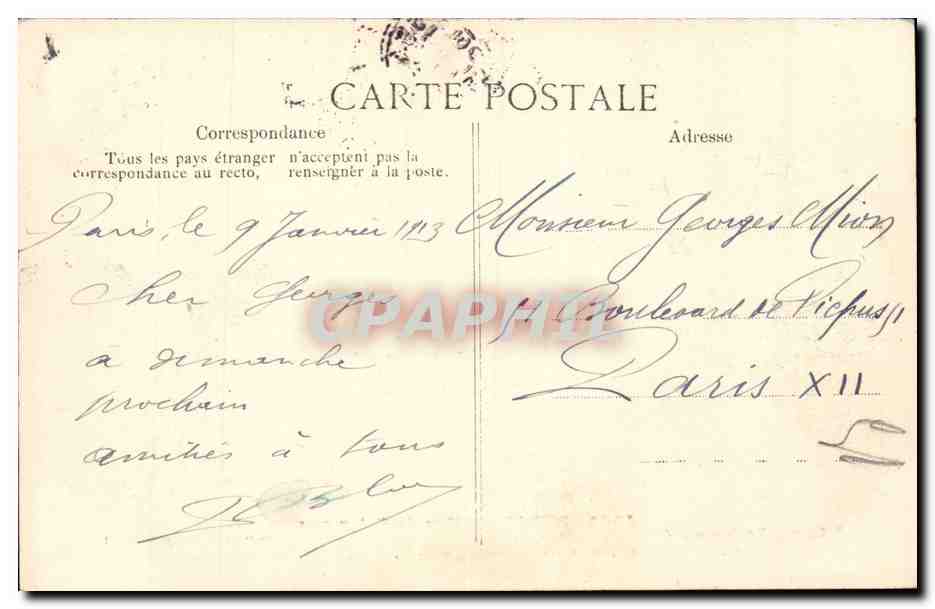 CARTE POSTALE
Correspondance
Tous les pays étranger n'acceptent pas la
correspondance au recto, renseigner à la poste.
Paris, le 9 Janvier 1913
Cher Georges
a dimanche
prochain
amitiés à tous
Adresse
Monsieur Georges Mion
51 Boulevard de Picpus 51
Paris XII
CPAPHIL